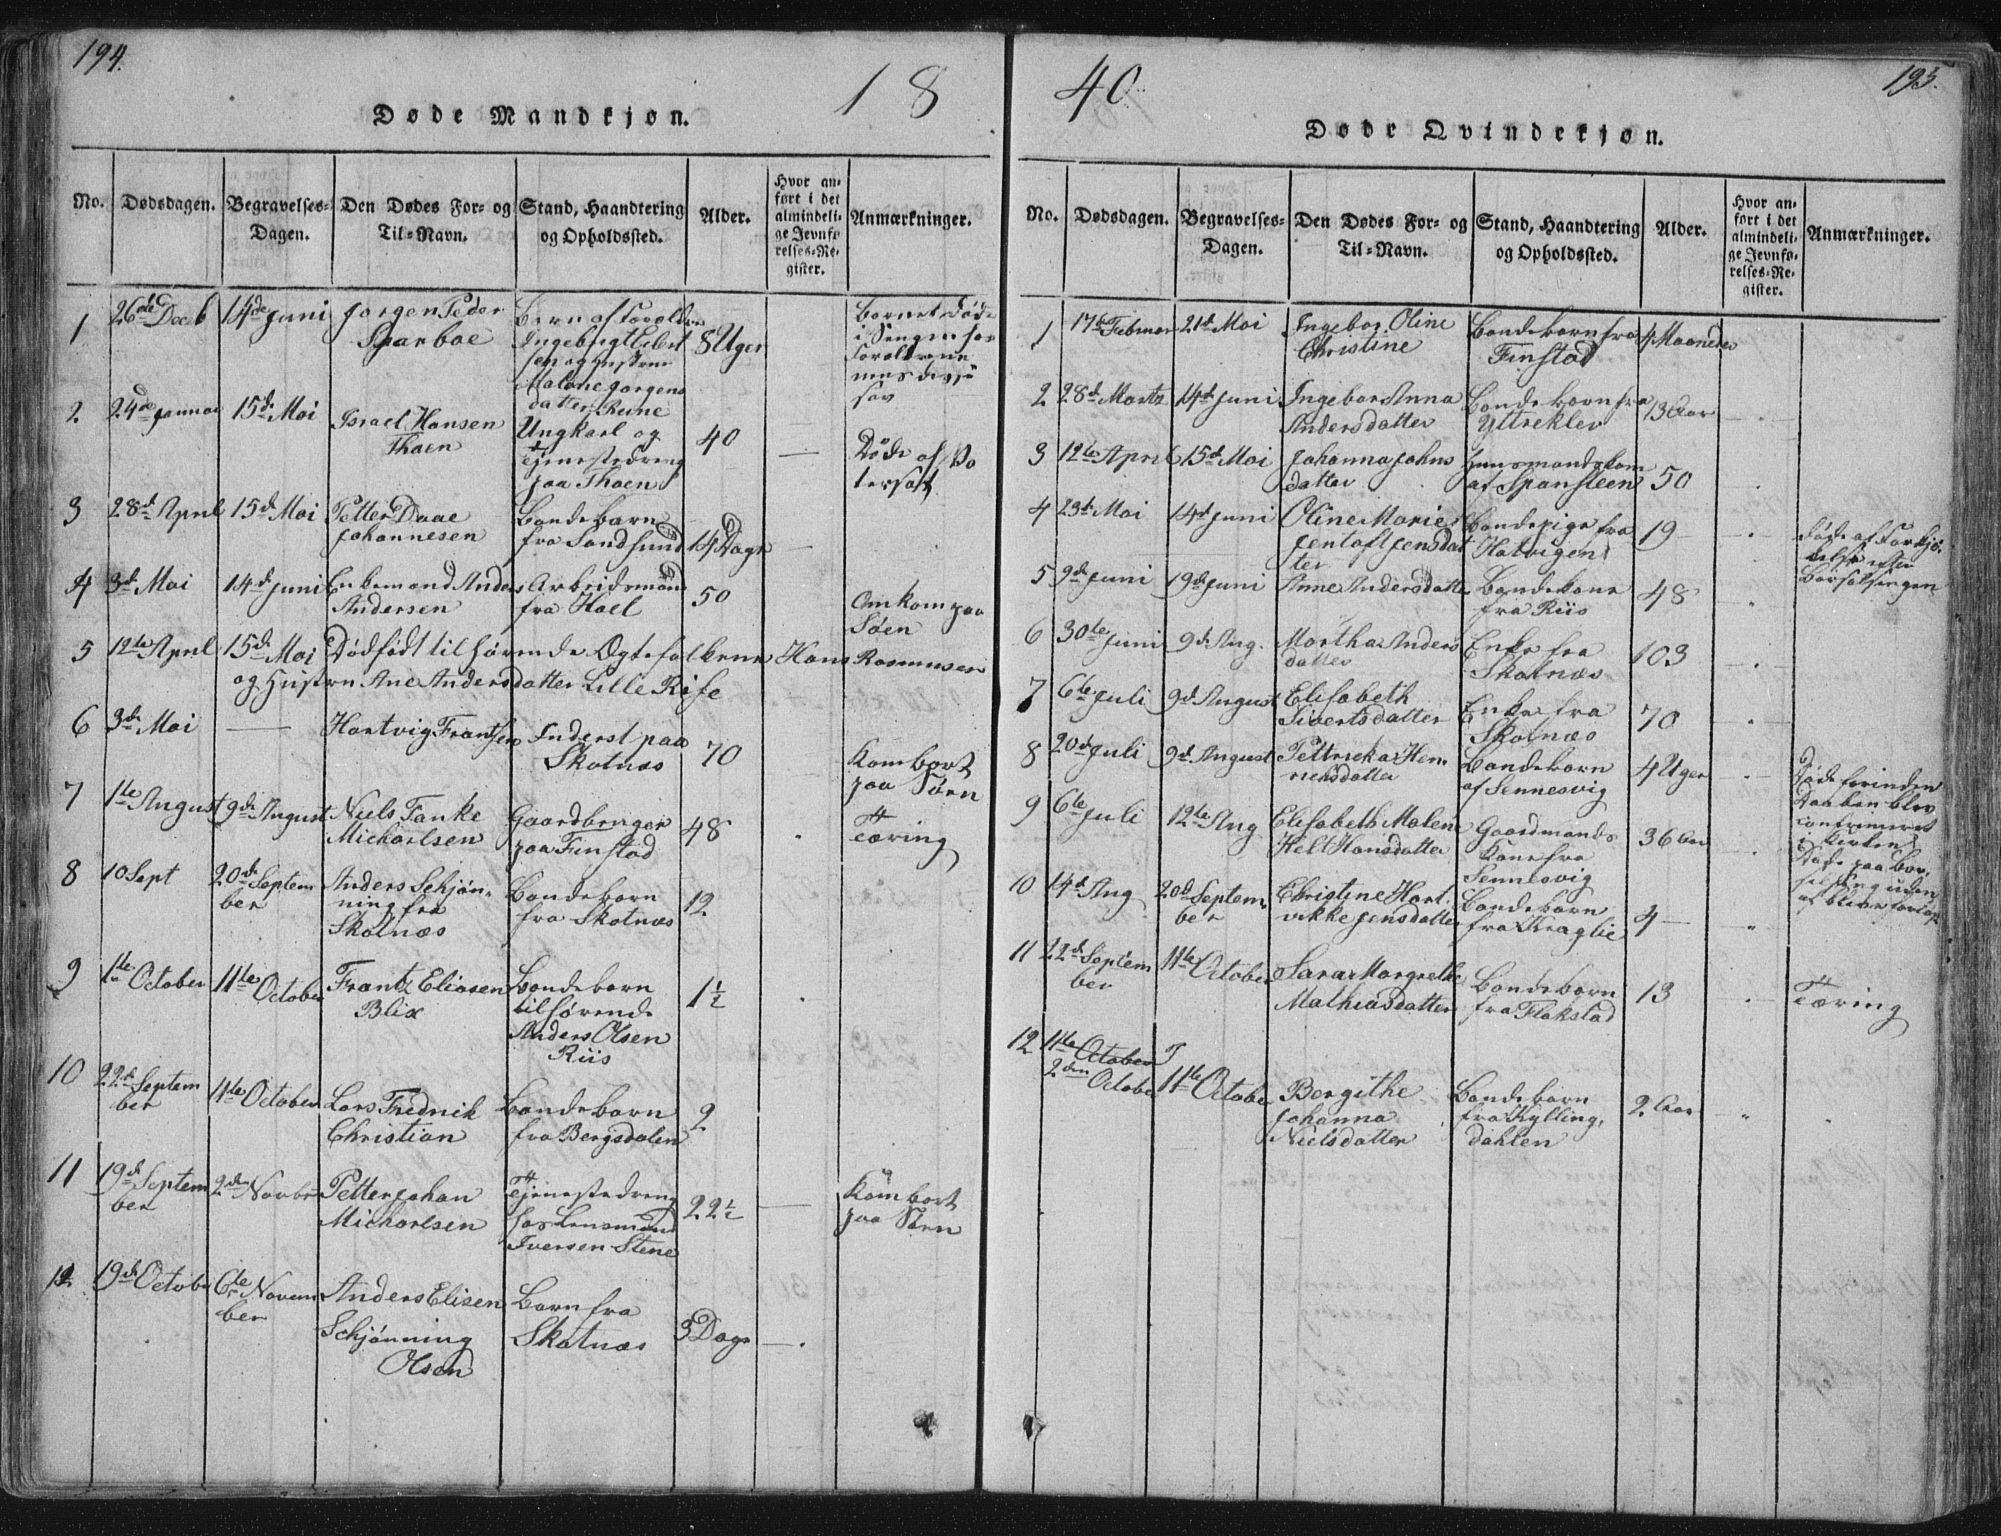 194.
18
Døde Mandkjøn.
No. Dødsdagen. Begravelses-Dagen. Den Dødes For- og Til-Navn. Stand, Haandtering og Opholdssted. Alder. Hvor anført i det almindelige Jevnførelses-Register. Anmærkninger.
1 26de Decb 14de Juni Jørgen Peder
Sparboe
Barn af Forældre
Ingebrigt
Malene Jørgens
datter Reine
8 Uger
Barnet døde
i Sengen hos
Forældrene
2 24de Januar 15de Mai Israel Hansen
Thoen
Ungkarl og
Tjenestedreng
paa Thoen
40
Døde af
3 28de April 15de Mai Petter Daae
Johannesen
Bondebarn
fra Sandsund
14 Dage
4 3de Mai 14de Juni Enkemand Anders
Andersen
Arbeidsmand
fra Hoel
50
Omkom paa
Søen
5 12te April 15de Mai Dødfødt tilhørende Ægtefolkene Hans Rasmusen
og Hustru Ane Andersdatter Lille Riise
6 3de Mai Hartvig Frantsen Inderst paa
Skotnæs
70
Kom bort
paa Søen
7 1te August 9de August Niels Fanke
Michaelsen
Gaardbruger
paa Finstad
48
Tæring
8 10 Sept 20de Septem
ber
Anders Schjøn-
ning fra
Skotnæs
Bondebarn
fra Skotnæs
12
9 1te October 11te October Frantz Eliasen
Blix
Bondebarn
tilhørende
Anders Olsen
Riis
1½
10 22de Septem
ber
11te October Lars Fredrik
Christian
Bondebarn
fra Bergsdalen
2
11 19de Septem
ber
2de Novbr Petter Johan
Michaelsen
Tjenestedreng
hos Lensmand
Iversen Stene
22½
Kom bort
paa Søen
12 19de Octobe 6te Novem
ber
Anders Elisen
Schjønning
Olsen
Barn fra
Skotnæs
3 Dage
40.
195.
Døde Qvindekjøn.
No. Dødsdagen. Begravelses-Dagen. Den Dødes For- og Til-Navn. Stand, Haandtering og Opholdssted. Alder. Hvor anført i det almindelige Jevnførelses-Register. Anmærkninger.
1 17de Februar 21de Mai Ingebor Oline
Christine
Bondebarn fra
Finstad
4 Maaneder
2 28de Martz 14de Juni Ingebor Anna
Andersdatter
Bondebarn fra
Yttreklev
13 Aar
3 12te April 15de Mai Johanna Johns
datter
Huusmandskone
af Spansteen
50
4 23de Mai 14de Juni Oline Marie
Jentoft Jensdat
ter
Bondepige fra
Halvigen
19
Døde af Forkjø-
lelse efter
Barselsengen
5 9de Juni 19de Juni Anne Andersdatter Bondekone
fra Riis
48
6 30te Juni 9de Aug. Martha Anders
datter
Enke fra
Skotnæs
103
7 6te Juli 9de August Elisabeth
Sivertsdatter
Enke fra
Skotnæs
70
8 20de Juli 9de August Petterika Hen
riksdatter
Bondebarn
af Sennesvig
4 Uger
Døde forinden
Daaben blev
confirmeret
i Kirken
9 6te Juli 12te Aug Elisabeth Malene
Helt Hansdatter
Gaardmands
Kone fra
Sennesvig
36 Aar
Døde paa Bar-
selseng uden
at blive forløst
10 14de Aug 20de Septem
ber
Christine Hart
vikke Jensdatter
Bondebarn
fra Kraglie
4
11 22de Septem
ber
11te October Sara Margrethe
Mathiasdatter
Bondebarn
fra Flakstad
13
Tæring
12 11te October
2den Octobe 11te Octobe Bergithe
Johanna
Nielsdatter
Bondebarn
fra Kylling-
dahlen
2 Aar